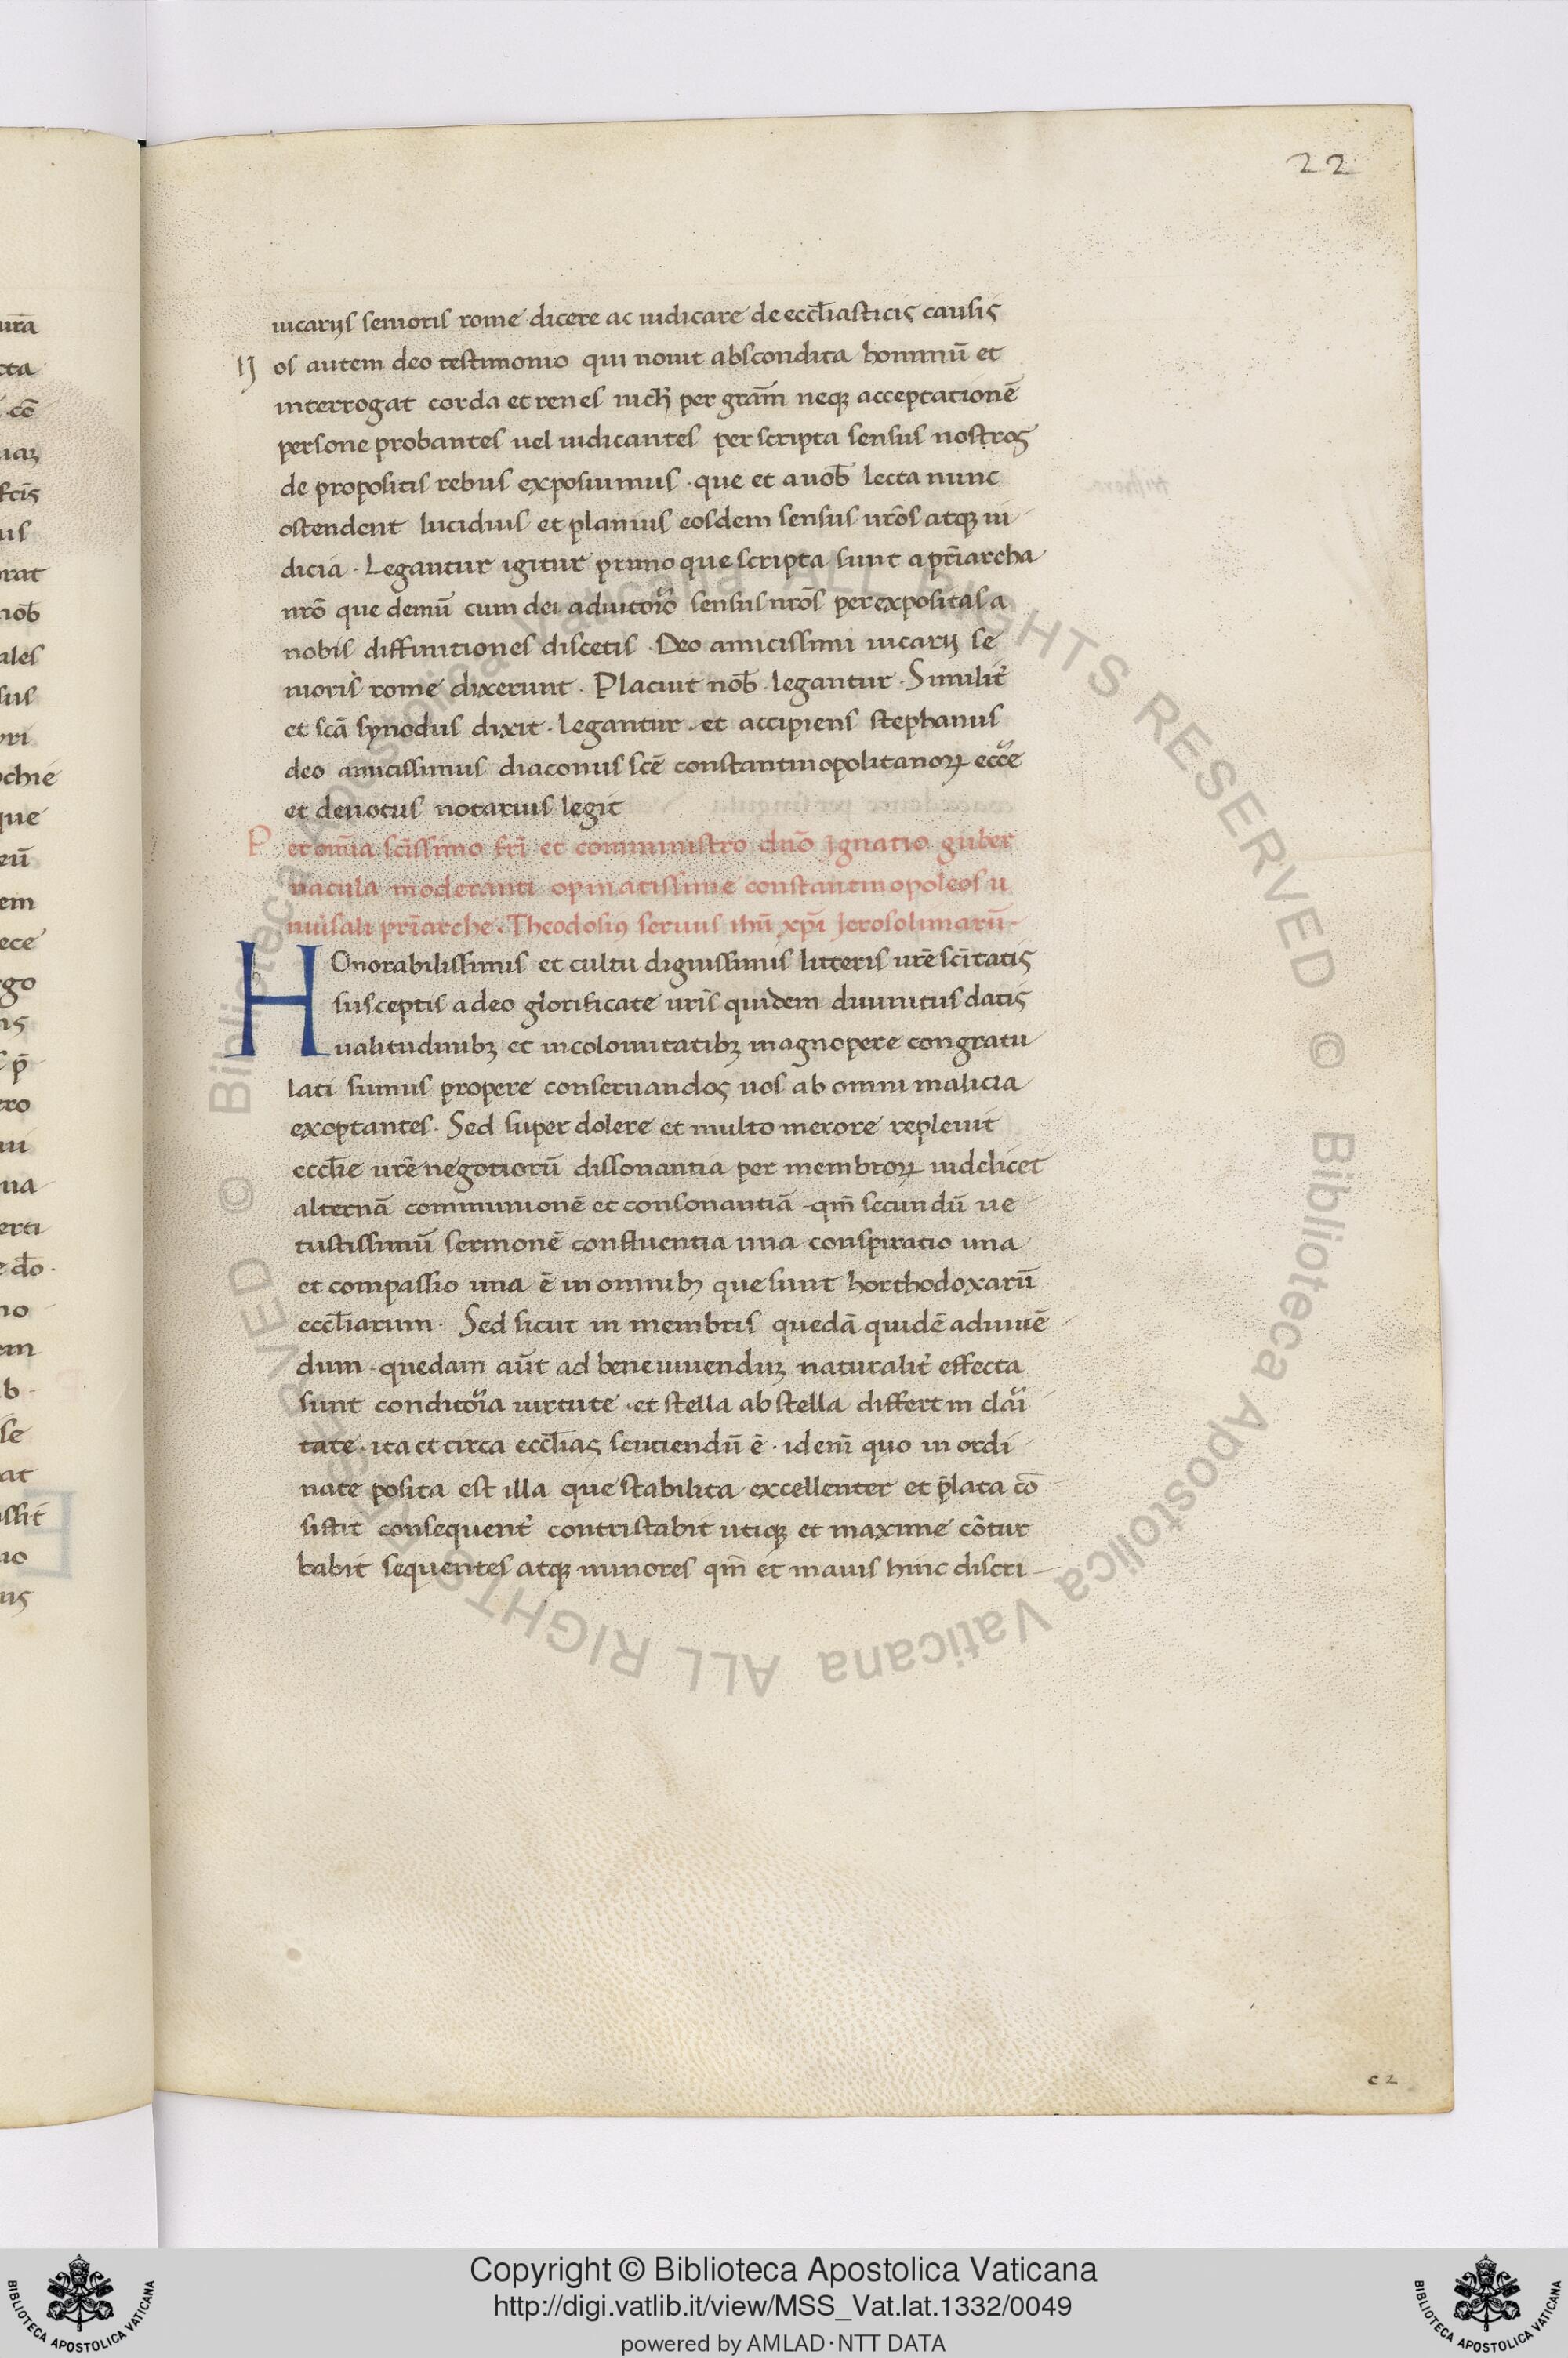 22
uicarijs senioris rome dicere ac iudicare de eccl̅iasticis causis
N os autem deo testimonio qui nouit abscondita hominū et
interrogat corda et renes nich̅ per gram̅ neqꝫ acceptationē
persone probantes uel iudicantes per scripta sensus nostros
de propositis rebus exposuimus · que et a uob̅ lecta nunc
ostendent lucidius et planius eosdem sensus nr̅os atqꝫ iu
dicia · Legantur igitur primo que scripta sunt a pr̅iarcha
nr̅o que demū cum dei adiutorio sensus nr̅os per expositas a
nobis diffinitiones discetis · Deo amicissimi uicarij se
nioris rome dixerunt · Placuit nob̅ · legantur · Similit̓
et sc̅ā synodus dixit · legantur · et accipiens stephanus
deo amicissimus diaconus sc̅ē constantinopolitanoꝝ ecc̅e
et deuotus notarius legit
P er om̅ia sc̅issimo fr̅i et comministro dn̅o ignatio guber
nacula moderanti opinatissime constantinopoleos u
niu̓sali pr̅iarche · Theodosiꝰ seruus ih̅u xp̅i Jerosolimarū
HOnorabilissimis et cultu dignissimis litteris ur̅e sc̅itatis
susceptis a deo glorificate ur̅is quidem diuinitus datis
ualitudinibꝫ et incolomitatibꝫ magnopere congratu
lati sumus propere conseruandos uos ab omni malicia
exoptantes · Sed super dolere et multo merore repleuit
eccl̅ie ur̅e negotiorū dissonantia per membroꝝ uidelicet
alternā communionē et consonantiā · qm̅ secundū ue
tustissimū sermonē confluentia una conspiratio una
et compassio una ē in omnibꝫ que sunt horthodoxarū
eccl̅iarum · Sed sicut in membris quedā quidē ad uiuē
dum · quedam aūt ad bene uiuenduꝫ naturalit̓ effecta
sunt conditoria uirtute · et stella ab stella differt in clari
tate · ita et circa eccl̅ias sentiendū ē · idem̅ quo in ordi
nate posita est illa que stabilita excellenter et p̅lata cō
sistit consequent̓ contristabit utiqꝫ et maxime cōtur
babit sequentes atqꝫ minores qm̅ et mauis hinc discri
c 2
ura̅
cta
cō
nob̅
ales
sus
chie
que
eū
em
ece
go
p̅
ro
ua
erti
e do ·
no
em
b
se
at
ssit
uo
Biblioteca Apostolica Vaticana ALL RIGHTS RESERVED © Biblioteca Apostolica Vaticana ALL RIGHTS RESERVED ©
Copyright © Biblioteca Apostolica Vaticana
http://digi.vatlib.it/view/MSS_Vat.lat.1332/0049
powered by AMLAD·NTT DATA
BIBLIOTECA APOSTOLICA VATICANA
BIBLIOTECA APOSTOLICA VATICANA